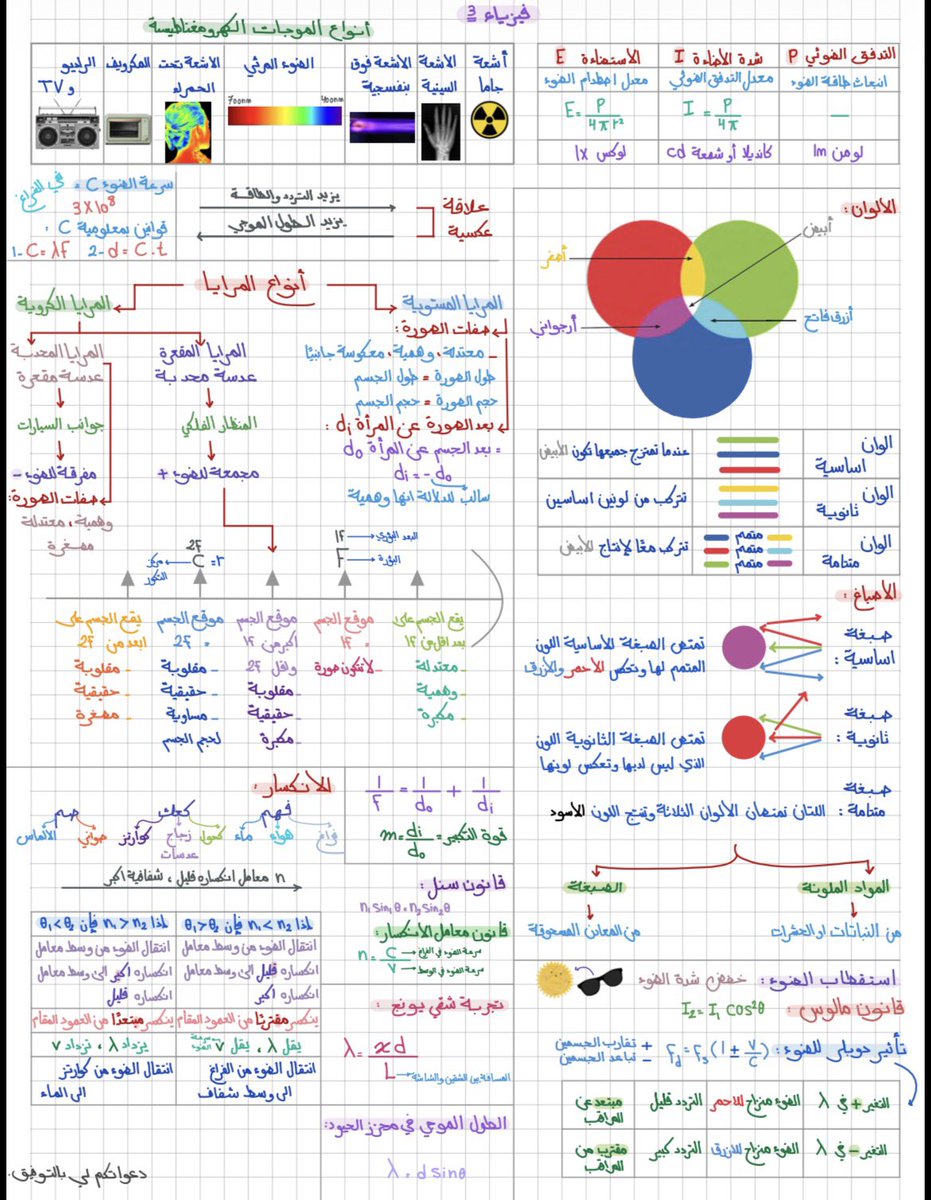 فيزياء 3
أنواع الموجات الكهرومغناطيسة
التدفق الضوئي P
شدة الإضاءة I
الاستضاءة E
انبعاث طاقة الضوء
معدل التدفق الضوئي
معدل اصطدام الضوء
—
I = P/4π
E = P/4πr²
لومن lm
كانديلا أو شمعة cd
لوكس lx
أشعة جاما
الأشعة السينية
الأشعة فوق بنفسجية
الضوء المرئي
700nm
400nm
الأشعة تحت الحمراء
المكرويف
الراديو و TV
علاقة عكسية
يزيد التردد والطاقة
يزيد الطول الموجي
سرعة الضوء C = في الفراغ
3×10⁸
قوانين بمعلومية C :
1- C = λF 2- d = C.t
الألوان :
أبيض
أصفر
أرجواني
أزرق فاتح
الوان اساسية
عندما تمتزج جميعها تكون الأبيض
الوان ثانوية
تتركب من لونين اساسين
الوان متتامة
متمم
متمم
متمم
تتركب معًا لإنتاج الأبيض
أنواع المرايا
المرايا المستوية
صفات الصورة :
- معتدلة، وهمية، معكوسة جانبيًا
طول الصورة = طول الجسم
حجم الصورة = حجم الجسم
بعد الصورة عن المرآة di :
= بعد الجسم عن المرآة do
di = -do
سالب للدلالة انها وهمية
المرايا الكروية
المرايا المقعرة
عدسة محدبة
المنظار الفلكي
مجمعة للضوء +
المرايا المحدبة
عدسة مقعرة
جوانب السيارات
مفرقة للضوء -
صفات الصورة :
وهمية، معتدلة
مصغرة
البعد البؤري 1F
البؤرة F
2F
r = C مركز التكور
يقع الجسم على بعد اقل من 1F
- معتدلة
- وهمية
- مكبرة
موقع الجسم = 1F
- لاتتكون صورة
موقع الجسم اكبر من 1F واقل 2F
- مقلوبة
- حقيقية
- مكبرة
موقع الجسم = 2F
- مقلوبة
- حقيقية
- مساوية لحجم الجسم
يقع الجسم على ابعد من 2F
- مقلوبة
- حقيقية
- مصغرة
الأصباغ :
صبغة اساسية :
تمتص الصبغة الأساسية اللون
المتمم لها وتعكس الأحمر والأزرق
صبغة ثانوية :
تمتص الصبغة الثانوية اللون
الذي ليس لديها وتعكس لونها
صبغة متتامة :
اللتان تمتصان الألوان الثلاثة وتنتج اللون الأسود
المواد الملونة
من النباتات او الحشرات
الصبغة
من المعادن المسحوقة
استقطاب الضوء : خفض شدة الضوء
قانون مالوس :
I₂ = I₁ cos²θ
تأثير دوبلر للضوء :
Fd = Fs (1 ± V/C)
+ تقارب الجسمين
- تباعد الجسمين
التغير + في λ
الضوء منزاح للأحمر
التردد قليل
مبتعد عن المراقب
التغير - في λ
الضوء منزاح للأزرق
التردد كبير
مقترب من المراقب
1/F = 1/do + 1/di
قوة التكبير = m = di/do
قانون سنل :
n₁ Sin₁ θ = n₂ Sin₂ θ
قانون معامل الأنكسار :
n = C/V
سرعة الضوء في الفراغ
سرعة الضوء في الوسط
تجربة شقي يونج :
λ = xd/L
المسافة بين الشقين والشاشة
الطول الموجي في محزز الحيود :
λ = d sinθ
الأنكسار :
فهم كعك صم
فراغ هواء ماء كحول زجاج عدسات كوارتز صواني الألماس
n معامل انكساره قليل ، شفافية اكبر
لماذا n₁ < n₂ فإن θ₁ > θ₂
لماذا n₁ > n₂ فإن θ₁ < θ₂
انتقال الضوء من وسط معامل
انكساره قليل الى وسط معامل
انكساره اكبر
انتقال الضوء من وسط معامل
انكساره اكبر الى وسط معامل
انكساره قليل
ينكسر مقتربًا من العمود المقام
ينكسر مبتعدًا من العمود المقام
يقل λ ، يقل v سرعة الضوء
يزداد λ ، تزداد v
انتقال الضوء من الفراغ
الى وسط شفاف
انتقال الضوء من كوارتز
الى الماء
دعواتكم لي بالتوفيق.